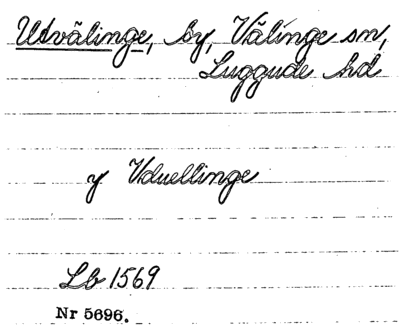 Utvälinge, by, Välinge sn,
Luggude hd
y Uduellinge
Lb 1569
Nr 5696.